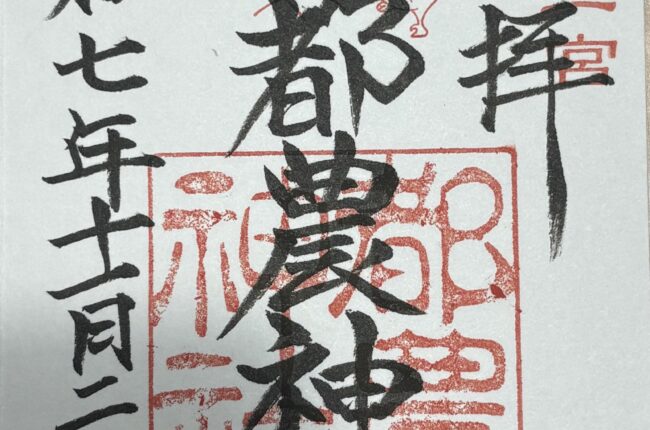 宮
拝
都農神
都農
神社
和七年十一月二